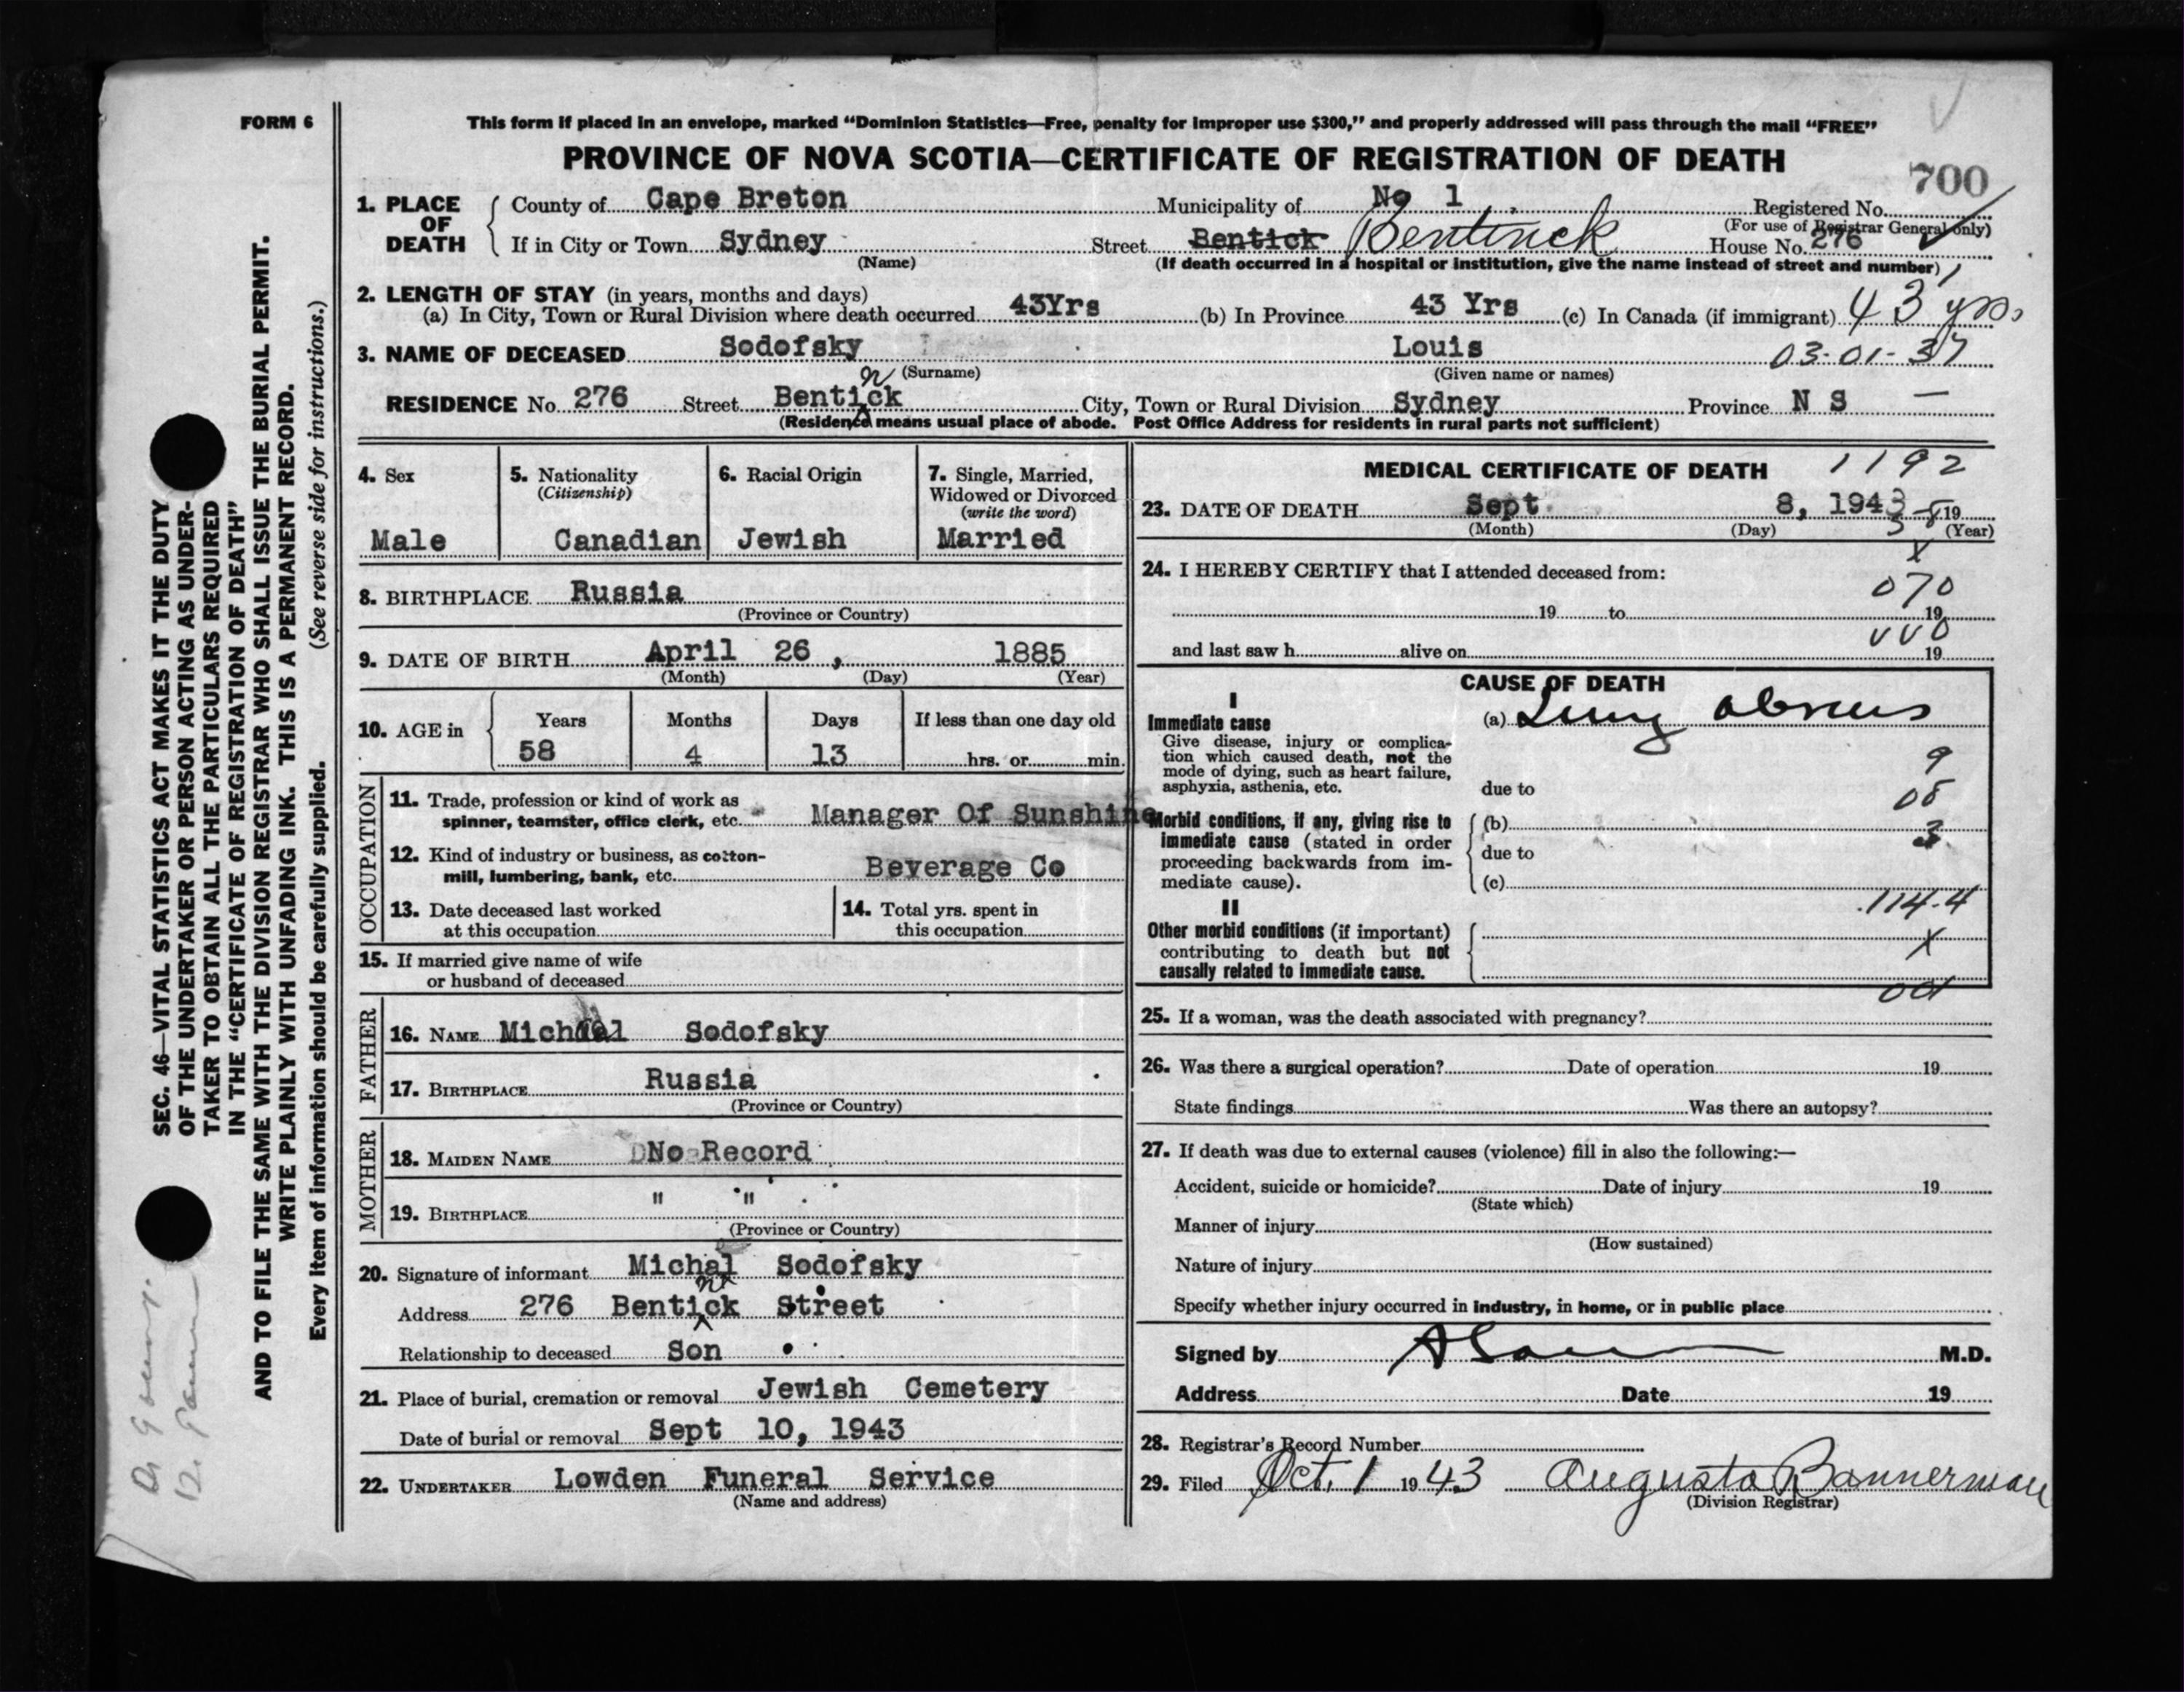 FORM 6
This form if placed in an envelope, marked “Dominion Statistics—Free, penalty for improper use $300,” and properly addressed will pass through the mail “FREE”
PROVINCE OF NOVA SCOTIA—CERTIFICATE OF REGISTRATION OF DEATH
700
1. PLACE OF DEATH
County of Cape Breton Municipality of No 1 Registered No.
(For use of Registrar General only)
If in City or Town Sydney Street Bentick Bentinck House No. 276
(Name) (If death occurred in a hospital or institution, give the name instead of street and number)
2. LENGTH OF STAY (in years, months and days)
(a) In City, Town or Rural Division where death occurred 43Yrs (b) In Province 43 Yrs (c) In Canada (if immigrant) 43 yrs
3. NAME OF DECEASED Sodofsky Louis 03-01-37
(Surname) (Given name or names)
RESIDENCE No. 276 Street Bentick n City, Town or Rural Division Sydney Province N S —
(Residence means usual place of abode. Post Office Address for residents in rural parts not sufficient)
4. Sex
Male
5. Nationality
(Citizenship)
Canadian
6. Racial Origin
Jewish
7. Single, Married,
Widowed or Divorced
(write the word)
Married
8. BIRTHPLACE Russia
(Province or Country)
9. DATE OF BIRTH April 26, 1885
(Month) (Day) (Year)
10. AGE in
Years Months Days If less than one day old
58 4 13 hrs. or min.
OCCUPATION
11. Trade, profession or kind of work as
spinner, teamster, office clerk, etc. Manager Of Sunshine
12. Kind of industry or business, as cotton-
mill, lumbering, bank, etc. Beverage Co
13. Date deceased last worked
at this occupation
14. Total yrs. spent in
this occupation
15. If married give name of wife
or husband of deceased
FATHER
16. NAME Sodofsky
17. BIRTHPLACE Russia
(Province or Country)
MOTHER
18. MAIDEN NAME No Record
19. BIRTHPLACE " "
(Province or Country)
20. Signature of informant Michal Sodofsky
Address 276 Bentick n Street
Relationship to deceased Son
21. Place of burial, cremation or removal Jewish Cemetery
Date of burial or removal Sept 10, 1943
22. UNDERTAKER Lowden Funeral Service
(Name and address)
MEDICAL CERTIFICATE OF DEATH 1192
23. DATE OF DEATH Sept 8, 1943 19
(Month) (Day) (Year)
X
24. I HEREBY CERTIFY that I attended deceased from:
070
19 to 19
and last saw h alive on 19
CAUSE OF DEATH
I
Immediate cause (a) Lung
Give disease, injury or complica-
tion which caused death, not the
mode of dying, such as heart failure,
asphyxia, asthenia, etc.
9
due to
08
Morbid conditions, if any, giving rise to
immediate cause (stated in order
proceeding backwards from im-
mediate cause).
(b)
3
due to
(c)
114-4
II
Other morbid conditions (if important)
contributing to death but not
causally related to immediate cause.
X
25. If a woman, was the death associated with pregnancy?
26. Was there a surgical operation? Date of operation 19
State findings Was there an autopsy?
27. If death was due to external causes (violence) fill in also the following:—
Accident, suicide or homicide? Date of injury 19
(State which)
Manner of injury
(How sustained)
Nature of injury
Specify whether injury occurred in industry, in home, or in public place
Signed by M.D.
Address Date 19
28. Registrar's Record Number
29. Filed Oct. 1 1943 Augusta Bannerman
(Division Registrar)
SEC. 46—VITAL STATISTICS ACT MAKES IT THE DUTY
OF THE UNDERTAKER OR PERSON ACTING AS UNDER-
TAKER TO OBTAIN ALL THE PARTICULARS REQUIRED
IN THE “CERTIFICATE OF REGISTRATION OF DEATH”
AND TO FILE THE SAME WITH THE DIVISION REGISTRAR WHO SHALL ISSUE THE BURIAL PERMIT.
WRITE PLAINLY WITH UNFADING INK. THIS IS A PERMANENT RECORD.
Every item of information should be carefully supplied. (See reverse side for instructions.)